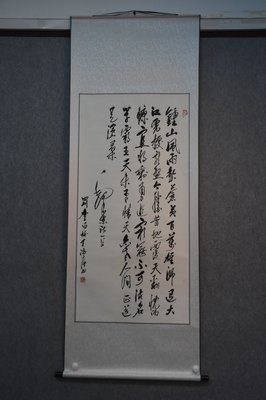 鐘山風雨起蒼黃百萬雄師過大
江虎踞龍盤今勝昔天翻地覆慨而
慷宜將剩勇追窮寇不可沽名
學霸王天若有情天亦老人間正道
是滄桑
毛澤東詩一首